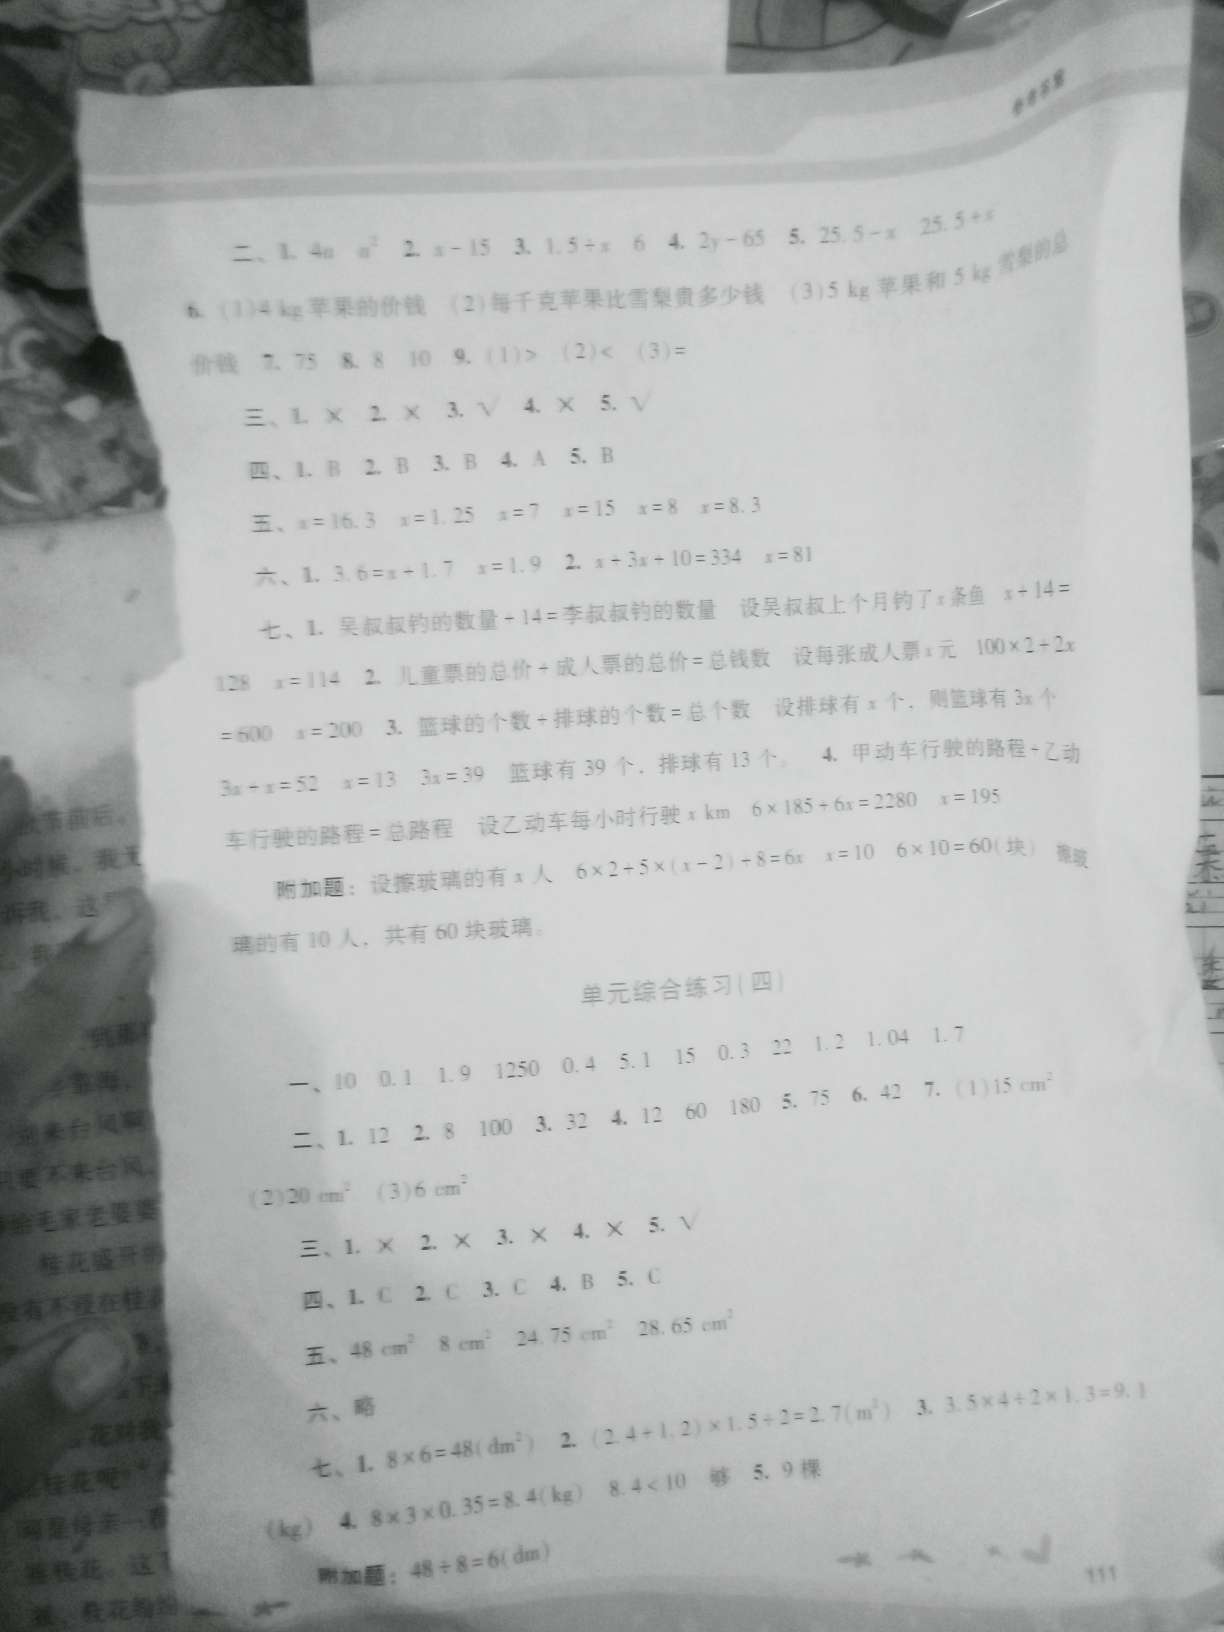 参考答案
二、1. 4a a² 2. x-15 3. 1.5÷x 6 4. 2y-65 5. 25.5-x 25.5÷x
6. (1)4 kg苹果的价钱 (2)每千克苹果比雪梨贵多少钱 (3)5 kg苹果和5 kg雪梨的总
价钱 7. 75 8. 8 10 9. (1)> (2)< (3)=
三、1. × 2. × 3. √ 4. × 5. √
四、1. B 2. B 3. B 4. A 5. B
五、x=16.3 x=1.25 x=7 x=15 x=8 x=8.3
六、1. 3.6=x+1.7 x=1.9 2. x+3x+10=334 x=81
七、1. 吴叔叔钓的数量+14=李叔叔钓的数量 设吴叔叔上个月钓了x条鱼 x+14=
128 x=114 2. 儿童票的总价+成人票的总价=总钱数 设每张成人票x元 100×2+2x
=600 x=200 3. 篮球的个数+排球的个数=总个数 设排球有x个，则篮球有3x个
3x+x=52 x=13 3x=39 篮球有39个，排球有13个。 4. 甲动车行驶的路程+乙动
车行驶的路程=总路程 设乙动车每小时行驶x km 6×185+6x=2280 x=195
附加题：设擦玻璃的有x人 6×2+5×(x-2)+8=6x x=10 6×10=60(块) 擦玻
璃的有10人，共有60块玻璃。
单元综合练习(四)
一、10 0.1 1.9 1250 0.4 5.1 15 0.3 22 1.2 1.04 1.7
二、1. 12 2. 8 100 3. 32 4. 12 60 180 5. 75 6. 42 7. (1)15 cm²
(2)20 cm² (3)6 cm²
三、1. × 2. × 3. × 4. × 5. √
四、1. C 2. C 3. C 4. B 5. C
五、48 cm² 8 cm² 24.75 cm² 28.65 cm²
六、略
七、1. 8×6=48(dm²) 2. (2.4+1.2)×1.5÷2=2.7(m²) 3. 3.5×4÷2×1.3=9.1
(kg) 4. 8×3×0.35=8.4(kg) 8.4<10 够 5. 9棵
附加题：48÷8=6(dm)
111